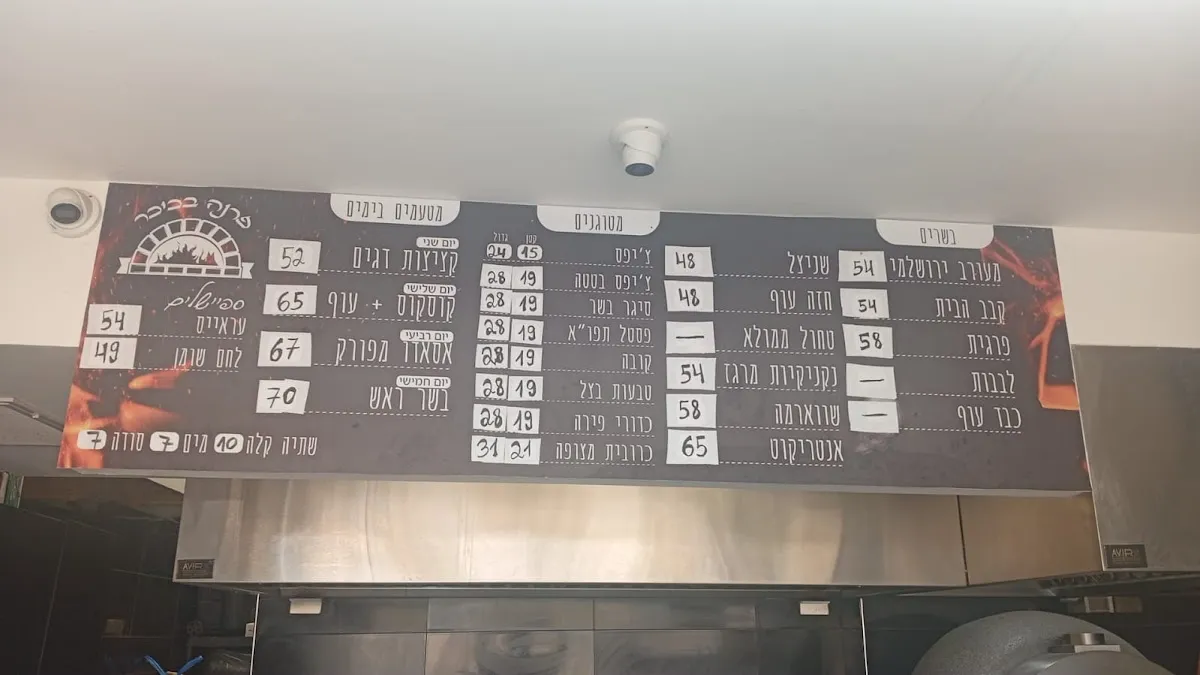 בשרים
מעורב ירושלמי 54
קבב הבית 54
פרגית 58
לבבות —
כבד עוף —
שניצל 48
חזה עוף 48
טחול ממולא —
נקניקיות מרגז 54
שווארמה 58
אנטריקוט 65
מטוגנים
קטן גדול
צ'יפס 15 24
צ'יפס בטטה 19 28
סיגר בשר 19 28
פסטל תפו"א 19 28
קובה 19 28
טבעות בצל 19 28
כדורי פירה 19 28
כרובית מצופה 21 31
מטעמים בימים
יום שני
קציצות דגים 52
יום שלישי
קוסקוס + עוף 65
יום רביעי
אסאדו מפורק 67
יום חמישי
בשר ראש 70
פרנה בכיכר
ספיישלים
עראייס 54
לחם שומן 49
שתיה קלה 10 מים 7 סודה 7
AVIR
AVIR